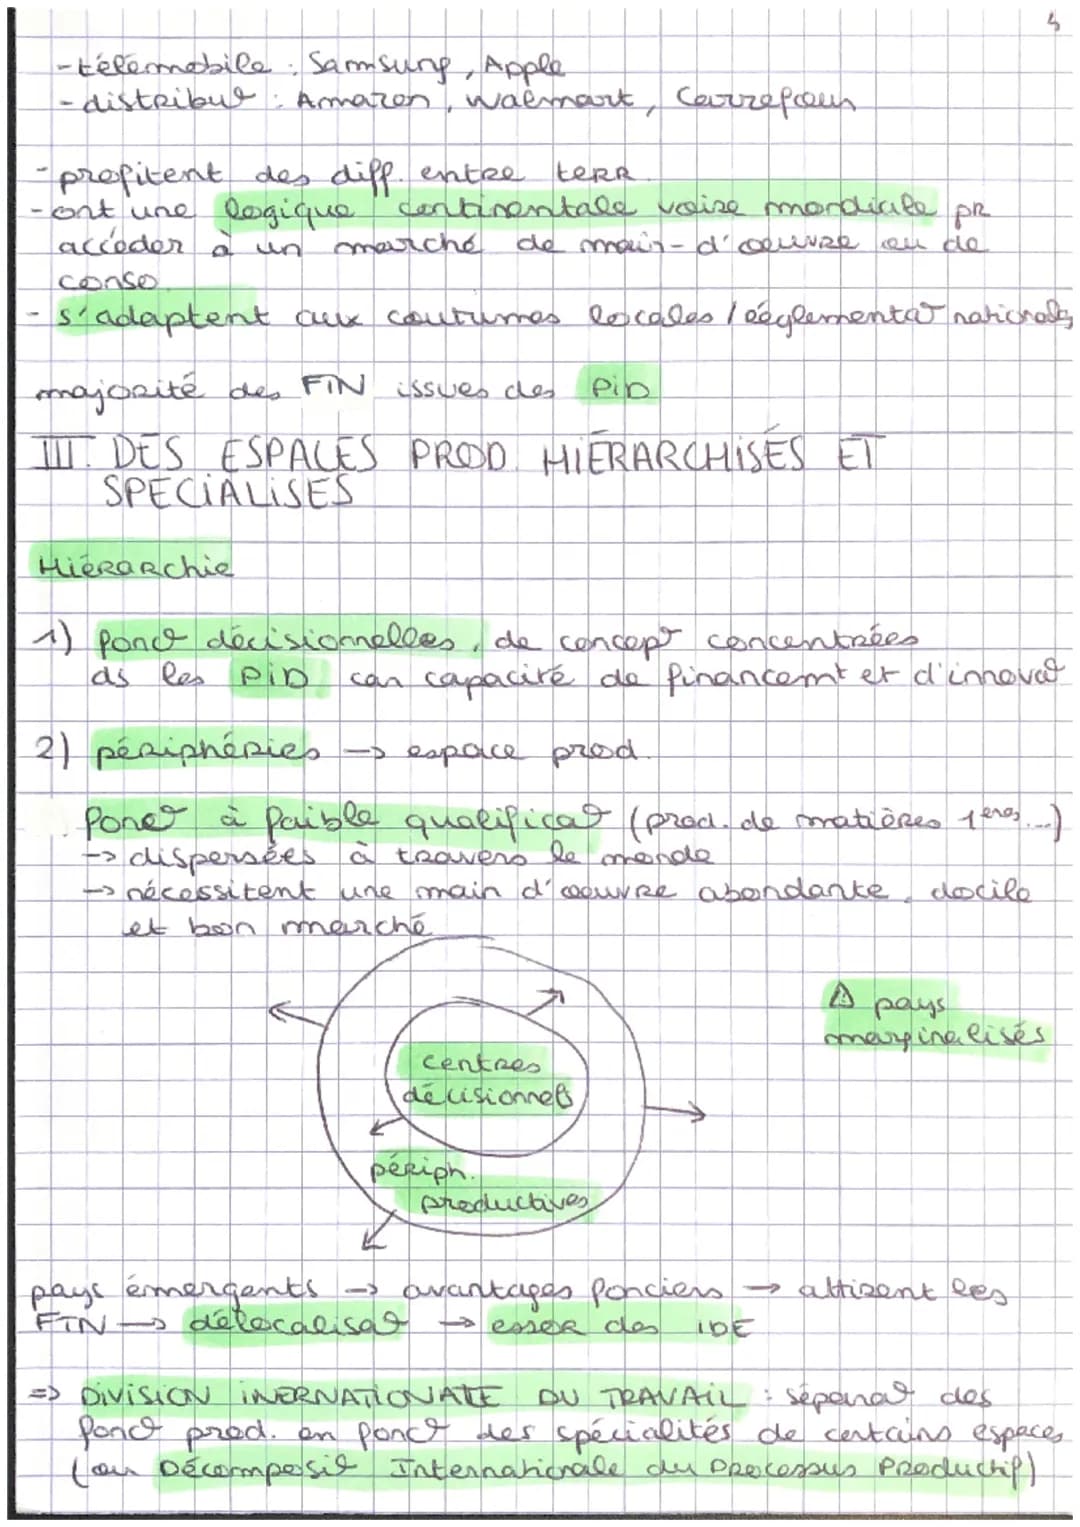 5
- télémobile : Samsung, Apple
- distribut° : Amazon, Walmart, Carrefour
- profitent des diff. entre terr.
- ont une logique continentale voire mondiale pr
accéder à un marché de main-d'oeuvre ou de
conso.
- s'adaptent aux coutumes locales / réglementat° nationales
majorité des FTN issues des PID
III. DES ESPACES PROD. HIÉRARCHISÉS ET
SPÉCIALISÉS
Hiérarchie
1) fonct° décisionnelles, de concept° concentrées
ds les PID car capacité de financemt et d'innovat°
2) périphéries → espace prod.
fonct° à faible qualificat° (prod. de matières 1ères...)
→ dispersées à travers le monde
→ nécessitent une main d'oeuvre abondante, docile
et bon marché
⚠ pays
marginalisés
centres
décisionnels
périph.
productives
pays émergents → avantages fonciers → attirent les
FTN → délocalisat° → essor des IDE
=> DIVISION INERNATIONALE DU TRAVAIL : séparat° des
fonct° prod. en fonct° des spécialités de certains espaces
(ou Décomposit° Internationale du Processus Productif)